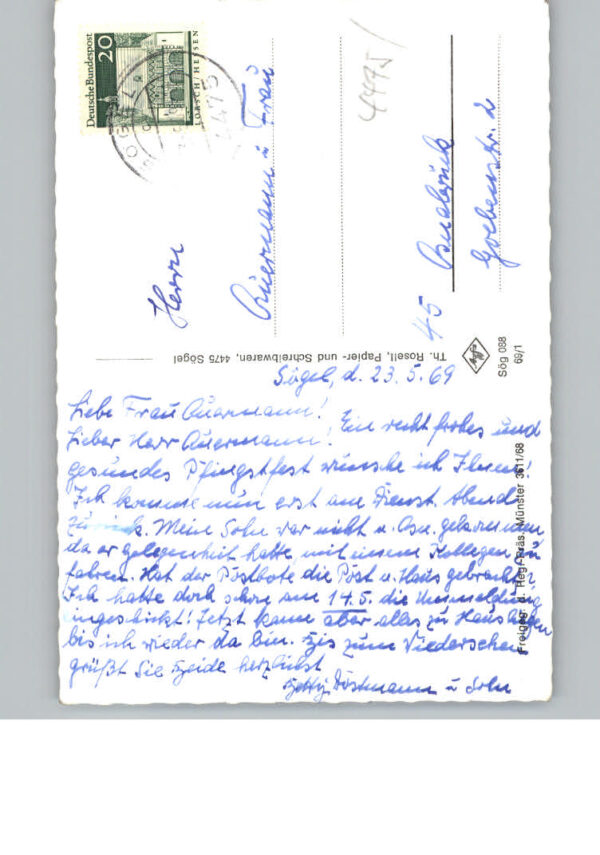 Deutsche Bundespost
20
LORSCH/HESSEN
SÖGEL
4475
4475
Herrn
Quermann u Frau
45 Osnabrück
Goebenstr. 2
Th. Rosell, Papier- und Schreibwaren, 4475 Sögel
Agfa
Sög 088
69/1
Freigeg. d. Reg.-Präs. Münster 3611/68
Sögel, d. 23.5.69
Liebe Frau Quermann!
Lieber Herr Quermann! Ein recht frohes und
gesundes Pfingstfest wünsche ich Ihnen!
Ich komme nun erst am Dienst. Abend
zurück. Meine Sohn war nicht n. Osn. gekommen,
da er gelegenheit hatte, mit einem Kollegen zu
fahren. Hat der Postbote die Post u. Haus gebracht?
Ich hatte doch schon am 14.5. die Ummeldung
eingeschickt! Jetzt kann aber alles zu Haus bleiben
bis ich wieder da bin. Bis zum Wiedersehen
grüßt Sie Beide herzlichst
Betty Dostmann u Sohn